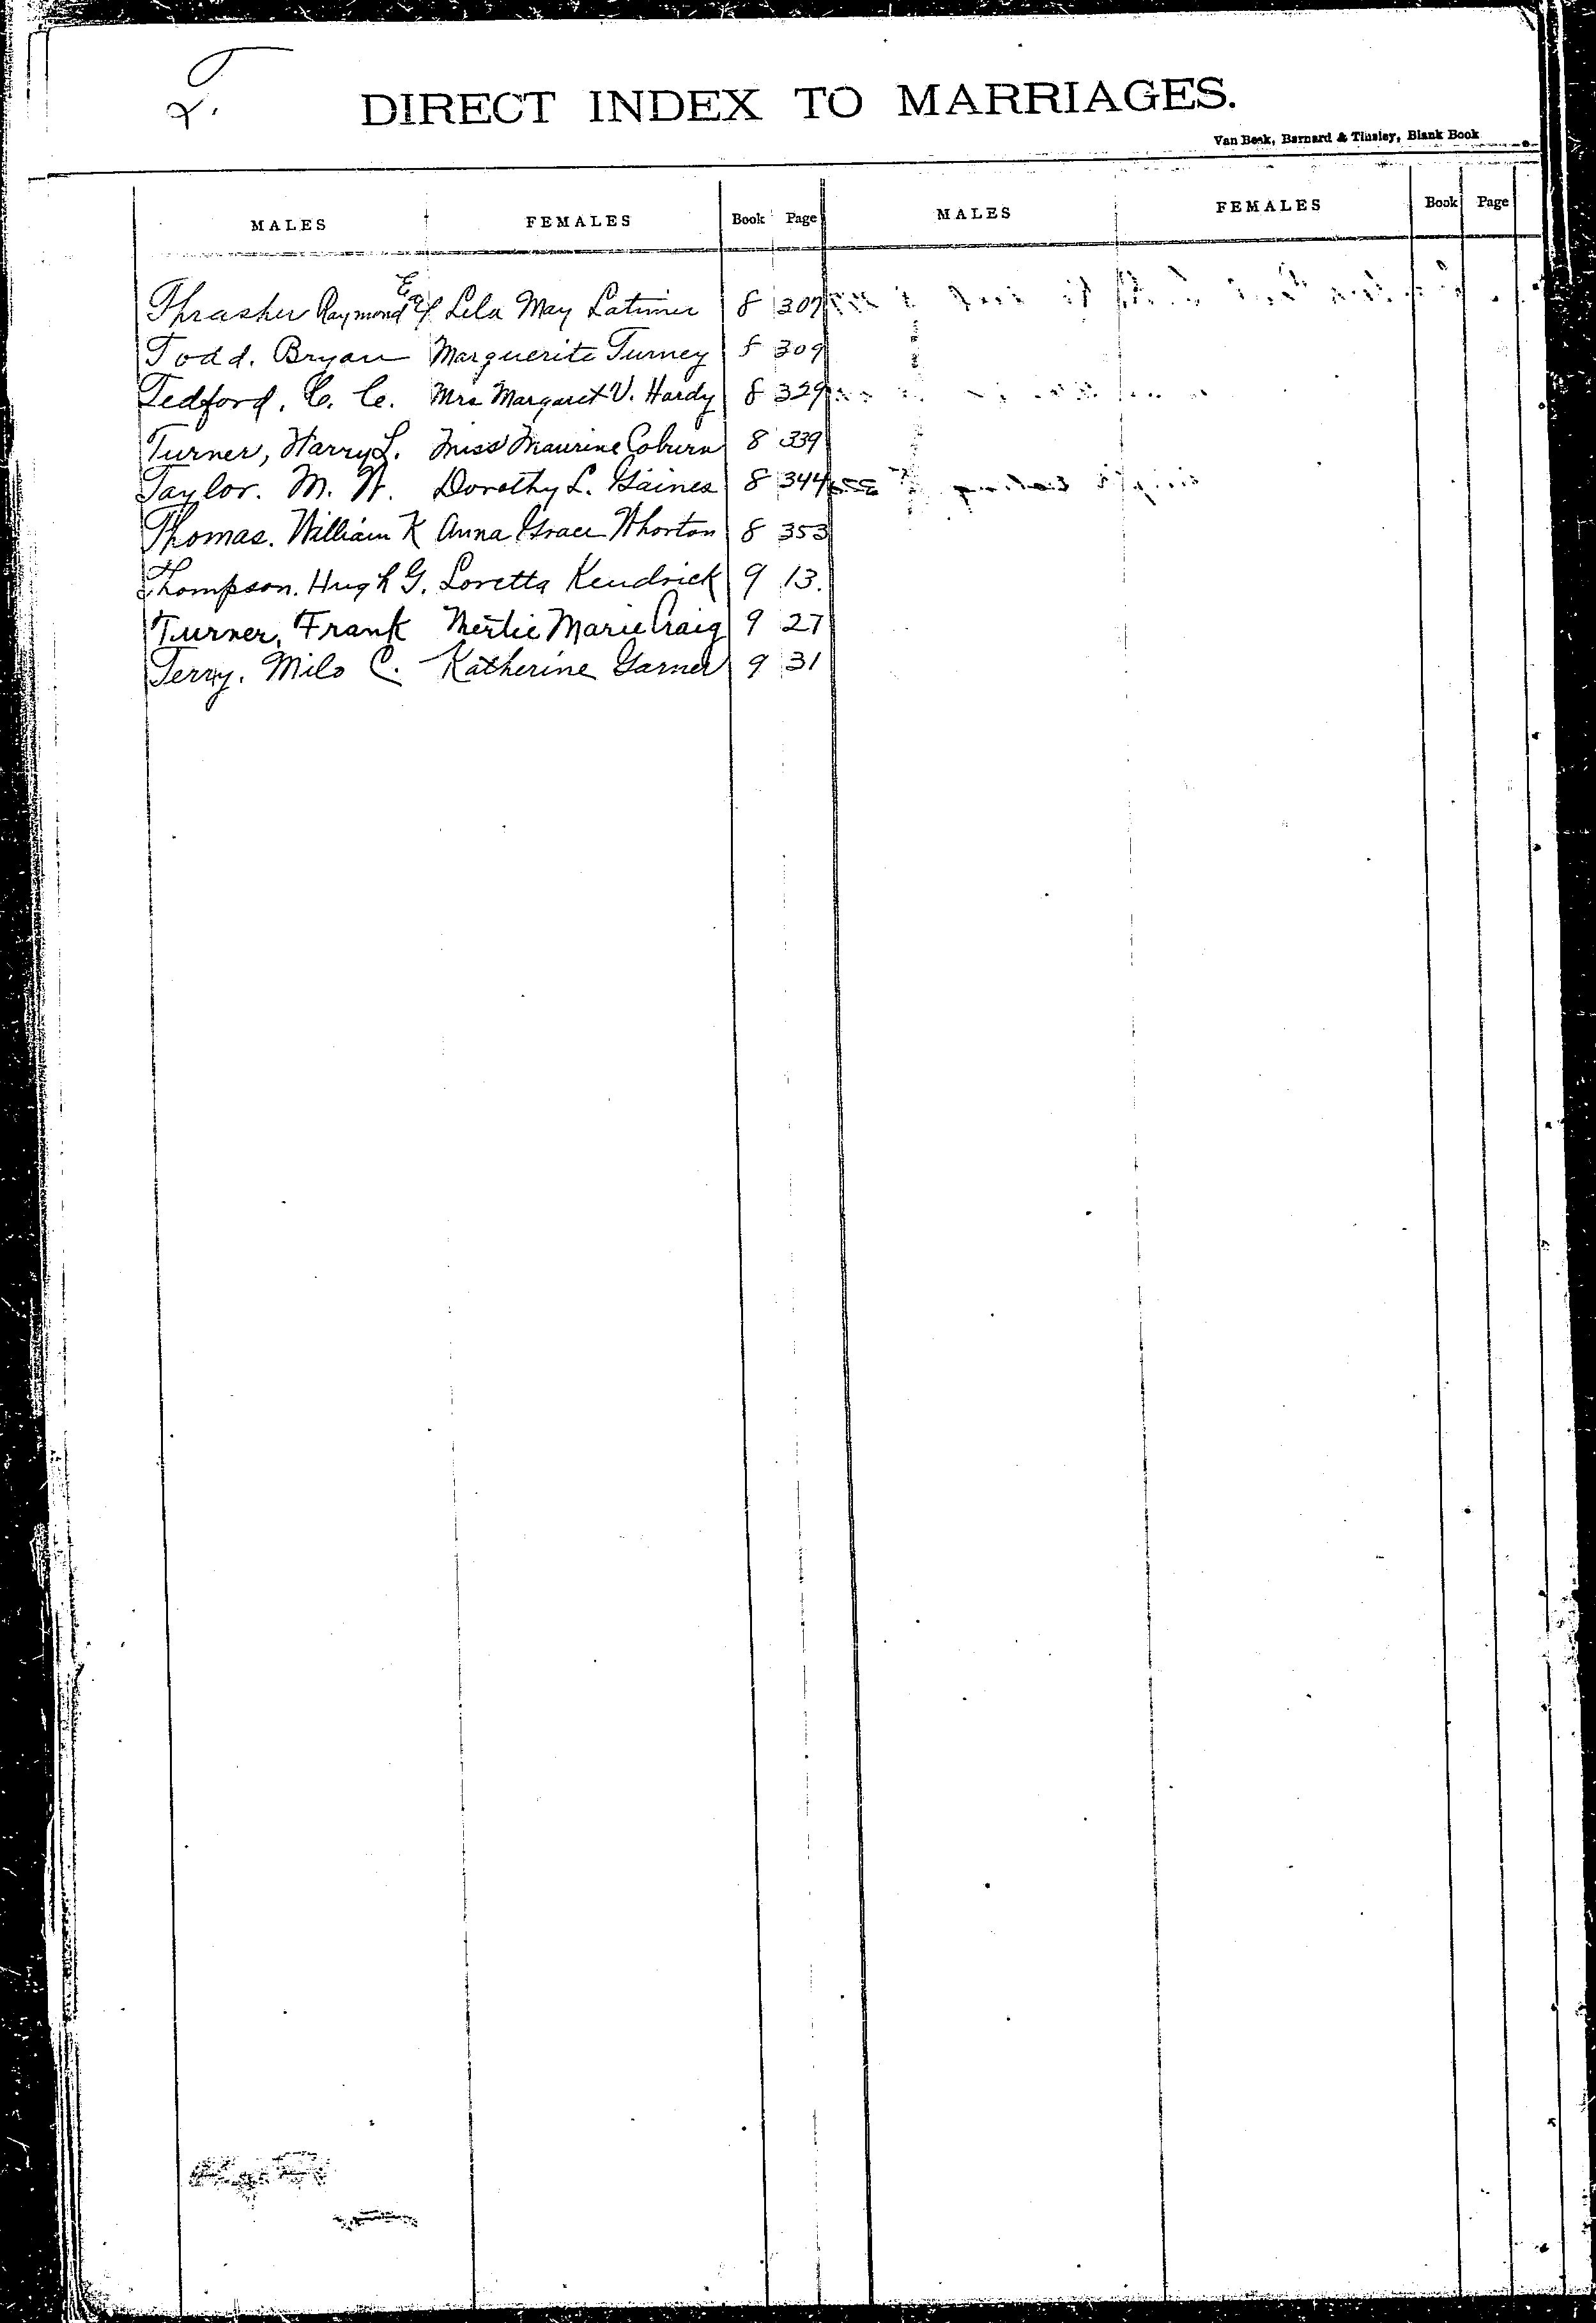 T.
DIRECT INDEX TO MARRIAGES.
Van Beek, Barnard & Tinsley, Blank Book
MALES FEMALES Book Page MALES FEMALES Book Page
Thrasher Raymond Earl Lela May Latimer 8 307
Todd. Bryan Marguerite Turney 8 309
Tedford. C. C. Mrs Margaret V. Hardy 8 329
Turner, Harry L. Miss Maurine Coburn 8 339
Taylor. M. W. Dorothy L. Gaines 8 344
Thomas. William K Anna Grace Whorton 8 353
Thompson. Hugh G. Loretta Kendrick 9 13.
Turner, Frank Mertie Marie Craig 9 27
Terry. Milo C. Katherine Garner 9 31